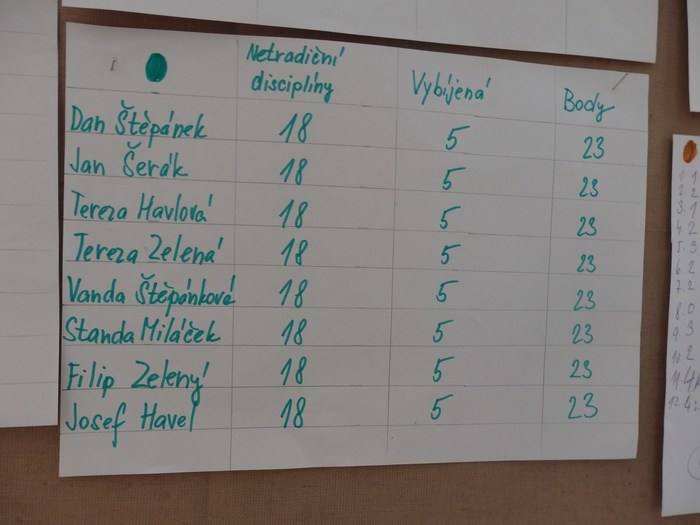 Netradiční
disciplíny Vybíjená Body
Dan Štěpánek 18 5 23
Jan Šerák 18 5 23
Tereza Havlová 18 5 23
Tereza Zelená 18 5 23
Vanda Štěpánková 18 5 23
Standa Miláček 18 5 23
Filip Zelený 18 5 23
Josef Havel 18 5 23